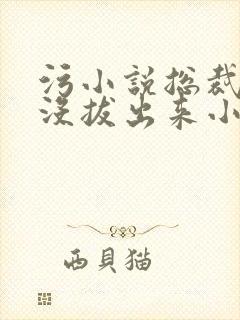 污小说总裁
没拔出来小
西貝猫